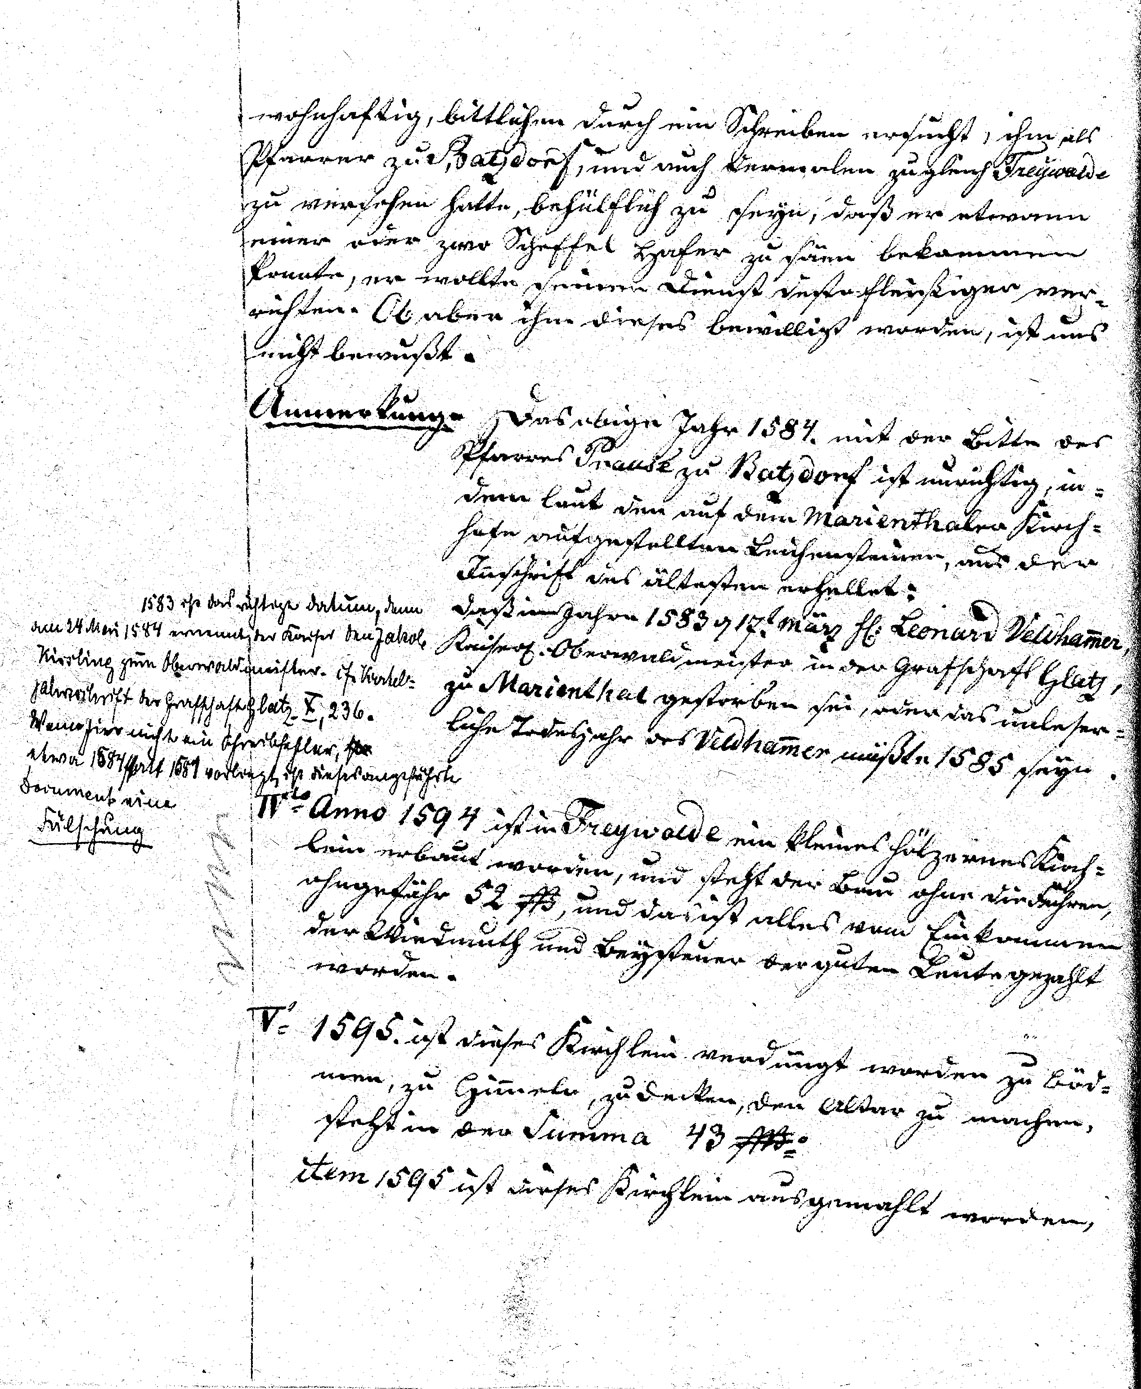 wohnhaftig, bittlichen durch ein Schreiben ersucht, ihm als
Pfarrer zu Batzdorf, und auch dermalen zugleich Freywalde
zu versehen hatte, behülflich zu seyn, daß er etwann
einer oder zwo Scheffel Haafer zu säen bekommen
konnte, er wollte seinen Dienst desto fleißiger ver-
richten. Ob aber ihm dieses bewilligt worden, ist uns
nicht bewußt.
Anmerkung. Das obige Jahr 1584. mit der Bitte des
Pfarres Prause zu Batzdorf ist unrichtig, in-
dem laut den auf dem Marienthaler Kirch-
hofe aufgestellten Leichensteinen, aus der
Inschrift des ältesten erhellet:
daß im Jahre 1583 9 17t März H: Leonard Veldham̄er,
Kaiserl. Oberwaldmeister in der Grafschaft Glatz,
zu Marienthal gestorben sei, oder das unleser-
liche Todesjahr des Veldham̄er müßte 1585 seyn.
1583 ist das richtige Datum, denn
am 24 Mai 1584 ernennt der Kaiser den Jakob
Kiesling zum Oberwaldmeister. cf. Viertel-
jahresschrift der Grafschaft Glatz X, 236.
Wenn hier nicht ein Schreibfehler,
etwa 1584 statt 1581 vorliegt, ist dieses angeführte
Document eine
Fälschung
IVto Anno 1594 ist in Freywalde ein kleines hölzernes Kirch-
lein erbaut worden, und steht der Bau ohne die Fuhren,
ohngefähr 52 ₰, und das ist alles vom Einkommen
der Wiedmuth und Beysteuer der guten Leute gezahlt
worden.
V. 1595. ist dieses Kirchlein verdüngt worden zu Böd-
men, zu Him̄eln, zu decken, den Altar zu machen,
steht in der Summa 43
item 1595 ist dieses Kirchlein ausgemahlt worden,